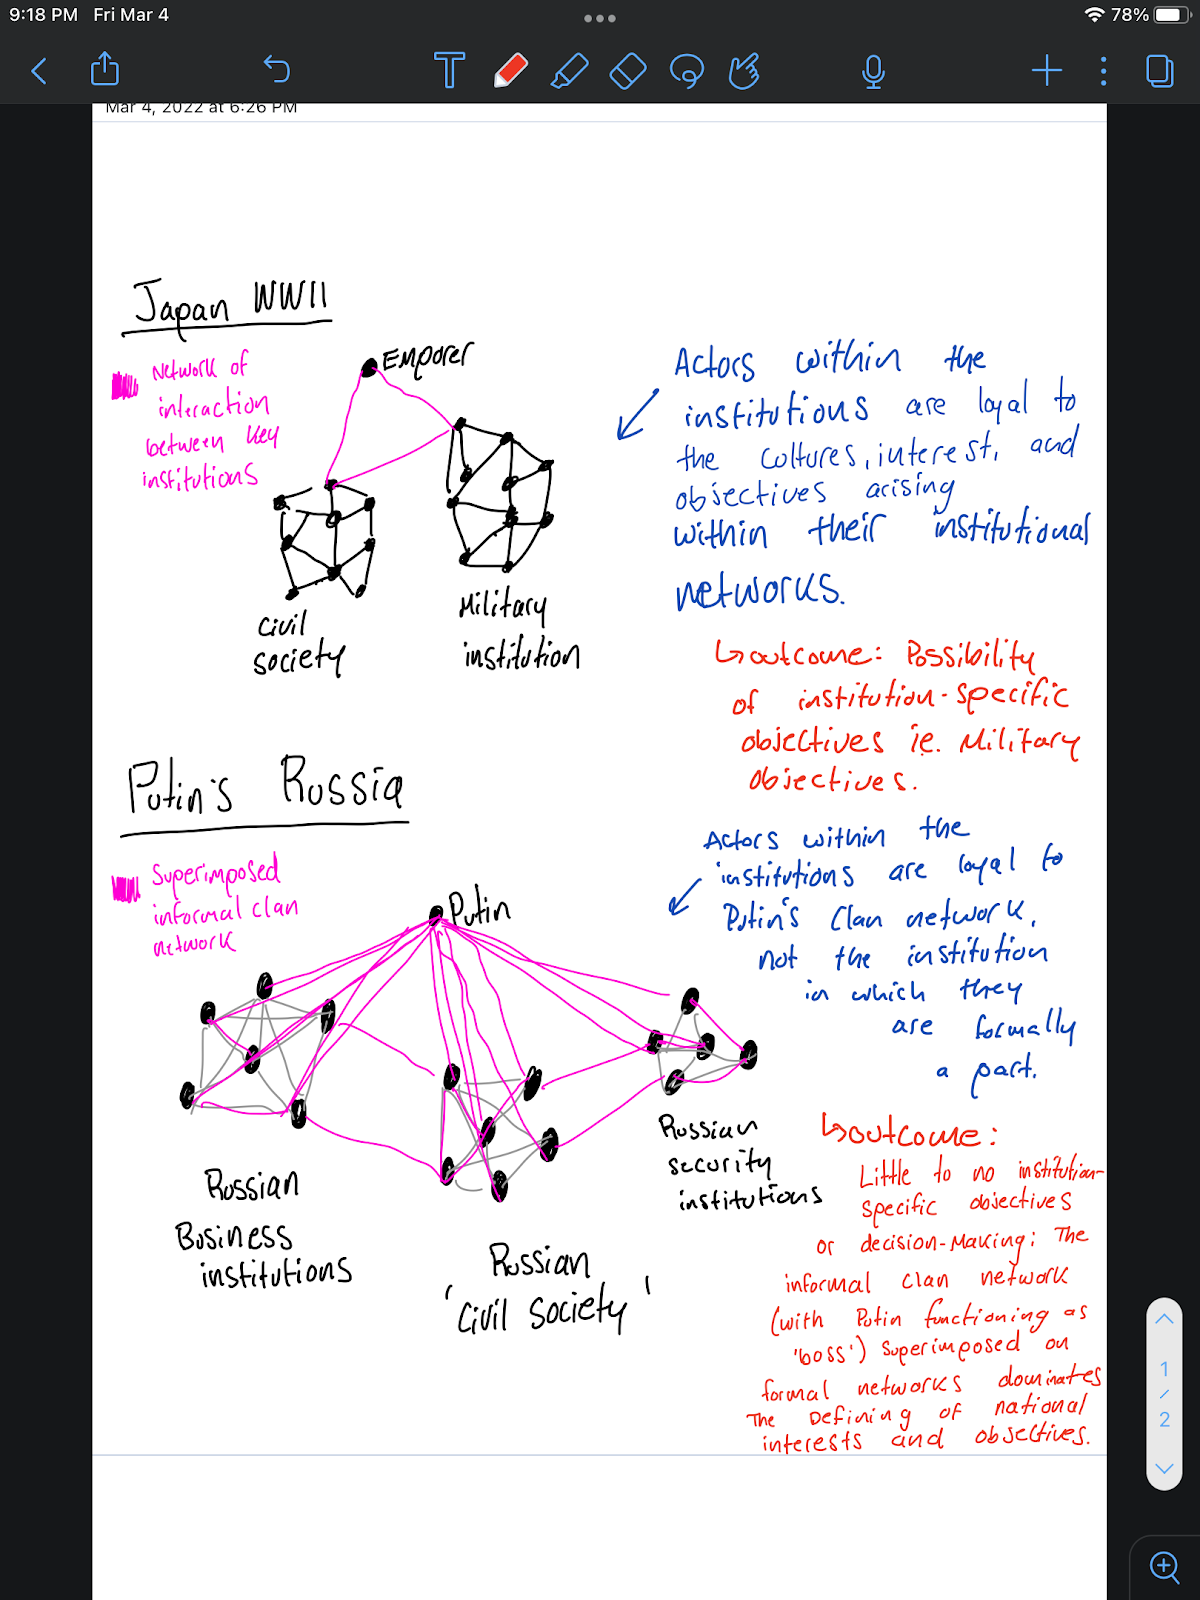 9:18 PM Fri Mar 4
78%
Mar 4, 2022 at 6:26 PM
Japan WWII
Network of
interaction
between key
institutions
Emporer
civil
society
Military
institution
Actors within the
institutions are loyal to
the coltures, interest, and
objectives arising
within their institutional
networks.
↳outcome: Possibility
of institution-specific
objectives ie. Military
objectives.
Putin's Russia
Superimposed
informal clan
network
Putin
Russian
Business
institutions
Russian
'Civil Society'
Russian
security
institutions
Actors within the
institutions are loyal to
Putin's Clan network,
not the institution
in which they
are formally
a part.
↳outcome:
Little to no institution-
specific objectives
or decision-making; The
informal clan network
(with Putin functioning as
'boss') superimposed on
formal networks dominates
The Defining of national
interests and objectives.
1
/
2